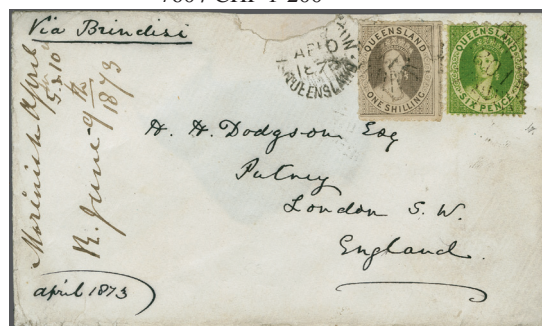 Via Brindisi
AP 10
187
QUEENSLAND
QUEENSLAND
ONE SHILLING
QUEENSLAND
SIX PENCE
H. H. Dodgson Esq
Putney
London S. W.
England
April
R. June 9th 1873
april 1873